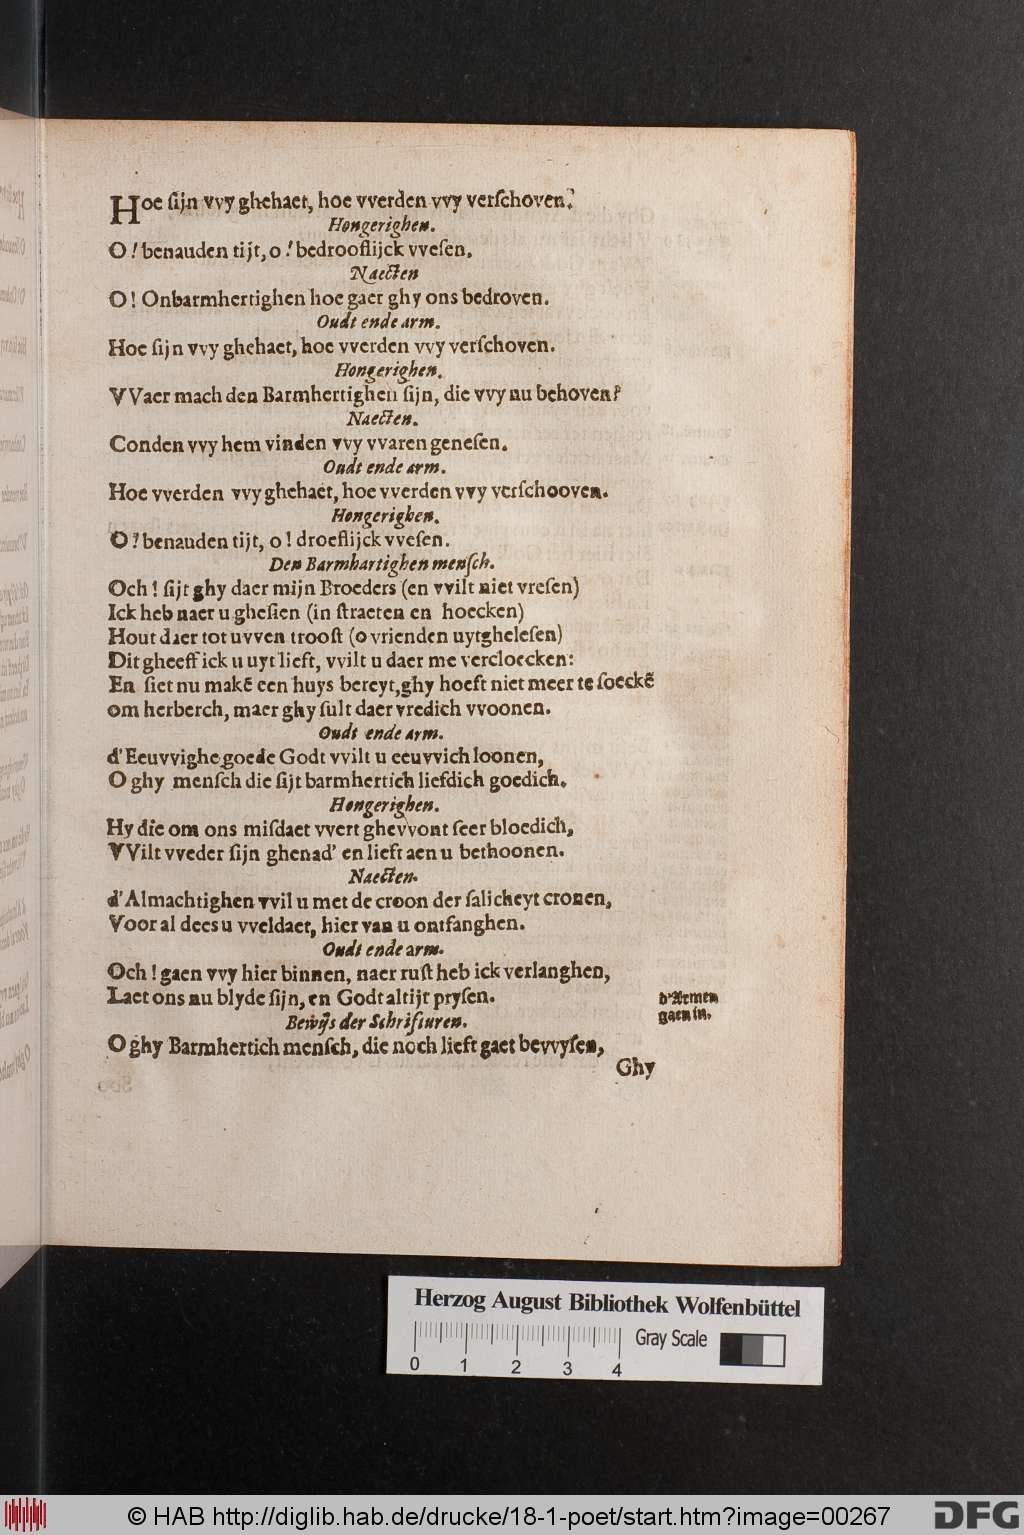 Hoe ſijn vvy ghehaet, hoe vverden vvy verſchoven?
Hongerighen.
O! benauden tijt, o! bedrooflijck vveſen.
Naecten
O! Onbarmhertighen hoe gaer ghy ons bedroven.
Oudt ende arm.
Hoe ſijn vvy ghehaet, hoe vverden vvy verſchoven.
Hongerighen.
VVaer mach den Barmhertighen ſijn, die vvy nu behoven?
Naecten.
Conden vvy hem vinden vvy vvaren geneſen.
Oudt ende arm.
Hoe vverden vvy ghehaet, hoe vverden vvy verſchooven.
Hongerighen.
O? benauden tijt, o! droeflijck vveſen.
Den Barmhartighen menſch.
Och! ſijt ghy daer mijn Broeders (en vvilt niet vreſen)
Ick heb naer u gheſien (in ſtraeten en hoecken)
Hout daer tot uvven trooſt (o vrienden uytgheleſen)
Dit gheeff ick u uyt lieft, vvilt u daer me vercloecken:
En ſiet nu makẽ een huys bereyt, ghy hoeft niet meer te ſoeckẽ
om herberch, maer ghy ſult daer vredich vvoonen.
Oudt ende arm.
d'Eeuvvighe goede Godt vvilt u eeuvvich loonen,
O ghy menſch die ſijt barmhertich liefdich goedich.
Hongerighen.
Hy die om ons miſdaet vvert ghevvont ſeer bloedich,
VVilt vveder ſijn ghenad' en lieft aen u bethoonen.
Naecten.
d'Almachtighen vvil u met de croon der ſalicheyt cronen,
Voor al dees u vveldaet, hier van u ontfanghen.
Oudt ende arm.
Och! gaen vvy hier binnen, naer ruſt heb ick verlanghen,
Laet ons nu blyde ſijn, en Godt altijt pryſen.
d'Armen
gaen in.
Bewijs der Schrifturen.
O ghy Barmhertich menſch, die noch lieft gaet bevvyſen,
Ghy
Herzog August Bibliothek Wolfenbüttel
Gray Scale
0 1 2 3 4
© HAB http://diglib.hab.de/drucke/18-1-poet/start.htm?image=00267
DFG